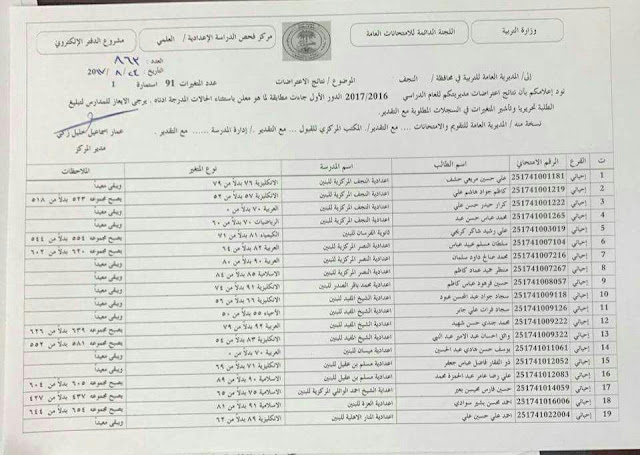 وزارة التربية
اللجنة الدائمة للامتحانات العامة
مركز فحص الدراسة الإعدادية / العلمي
مشروع الدفتر الالكتروني
العدد: ٨٦٢
التاريخ:
إلى/ المديرية العامة للتربية في محافظة / النجف
الموضوع / نتائج الاعتراضات
عدد المتغيرات 91 استمارة 1
نود إعلامكم بأن نتائج اعتراضات مديريتكم للعام الدراسي 2017/2016 الدور الأول جاءت مطابقة لما هو معلن باستثناء الحالات المدرجة ادناه . يرجى الايعاز للمدارس لتبليغ
الطلبة تحريريا وتأشير المتغيرات في السجلات المطلوبة مع التقدير.
نسخة منه / المديرية العامة للتقويم والامتحانات .... مع التقدير/ المكتب المركزي للقبول ... مع التقدير / إدارة المدرسة ...... مع التقدير.
عمار اسماعيل خليل زكي
مدير المركز
ت الفرع الرقم الامتحاني اسم الطالب اسم المدرسة نوع المتغير الملاحظات
1 إحيائي 251741001181 علي حسين اعدادية النجف المركزية للبنين الانكليزية ٧٦ بدلا من ٧٩ ويبقى معيدا
2 إحيائي 251741001219 كاظم جواد هاشم علي اعدادية النجف المركزية للبنين الانكليزية ٥٧ بدلا من ٥٢ يصبح مجموعه ٥٢٣ بدلا من ٥١٨
3 إحيائي 251741001222 كرار حيدر حسن علي اعدادية النجف المركزية للبنين العربية ٧٠ بدلا من ٠ ويبقى معيدا
4 إحيائي 251741001265 محمد عباس حسن عبد اعدادية النجف المركزية للبنين الرياضيات ٧٠ بدلا من ٦٠ ويبقى معيدا
5 إحيائي 251741003019 علي رشيد شاكر ثانوية الفرسان للبنين الكيمياء ٨١ بدلا من ٧١ يصبح مجموعه ٥٥٤ بدلا من ٥٤٤
6 إحيائي 251741007104 سلطان مسلم عبيد عباس اعدادية النصر المركزية للبنين العربية ٨٢ بدلا من ٦٤ يصبح مجموعه ٦٢٠ بدلا من ٦٠٢
7 إحيائي 251741007216 محمد صالح داود سلمان اعدادية النصر المركزية للبنين العربية ٩٠ بدلا من ٨٠ ويبقى معيدا
8 إحيائي 251741007267 منتظر عبد عماد كاظم اعدادية النصر المركزية للبنين الاسلامية ٨٥ بدلا من ٨٤ ويبقى معيدا
9 إحيائي 251741008057 حسين فرهود عباس كاظم اعدادية محمد باقر الصدر للبنين الانكليزية ٩١ بدلا من ٧٤ ويبقى معيدا
10 إحيائي 251741009118 سجاد جواد عبد الحسن عبود اعدادية الشيخ المفيد للبنين الانكليزية ٦٦ بدلا من ٥٦ ويبقى معيدا
11 إحيائي 251741009126 سجاد فرات علي جابر اعدادية الشيخ المفيد للبنين الأحياء ٥٥ بدلا من ٥٠ ويبقى معيدا
12 إحيائي 251741009222 محمد حسن شهيد اعدادية الشيخ المفيد للبنين العربية ٩٢ بدلا من ٧٩ يصبح مجموعه ٦٣٩ بدلا من ٦٢٦
13 إحيائي 251741009322 احسان عبد الامير عبد النبي اعدادية الشيخ المفيد للبنين الانكليزية ٨٣ بدلا من ٥٤ يصبح مجموعه ٥٨١ بدلا من ٥٥٢
14 إحيائي 251741011060 يوسف حسن هادي عبد الحسين اعدادية ميسان للبنين العربية ٧٠ بدلا من ٠ ويبقى معيدا
15 إحيائي 251741012052 ذو الفقار فاضل عباس جعفر اعدادية مسلم بن عقيل للبنين الانكليزية ٧١ بدلا من ٦٩ ويبقى معيدا
16 إحيائي 251741012083 علي رضا عامر عبد الحمزة محمد اعدادية مسلم بن عقيل للبنين الاسلامية ٩٠ بدلا من ٨٩ يصبح مجموعه ٦٠٥ بدلا من ٦٠٤
17 إحيائي 251741014059 حسين فارس اعدادية الشيخ احمد الوائلي المركزية للبنين الاسلامية ٧٥ بدلا من ٦٥ يصبح مجموعه ٤٣٧ بدلا من ٤٢٧
18 إحيائي 251741016006 احمد محسن بشير سوادي اعدادية العزة للبنين الاسلامية ٩١ بدلا من ٨١ يصبح مجموعه ٦٥٤ بدلا من ٦٤٤
19 إحيائي 251741022004 احمد علي حسين علي اعدادية المنار الاهلية للبنين الانكليزية ٨٩ بدلا من ٦٢ ويبقى معيدا